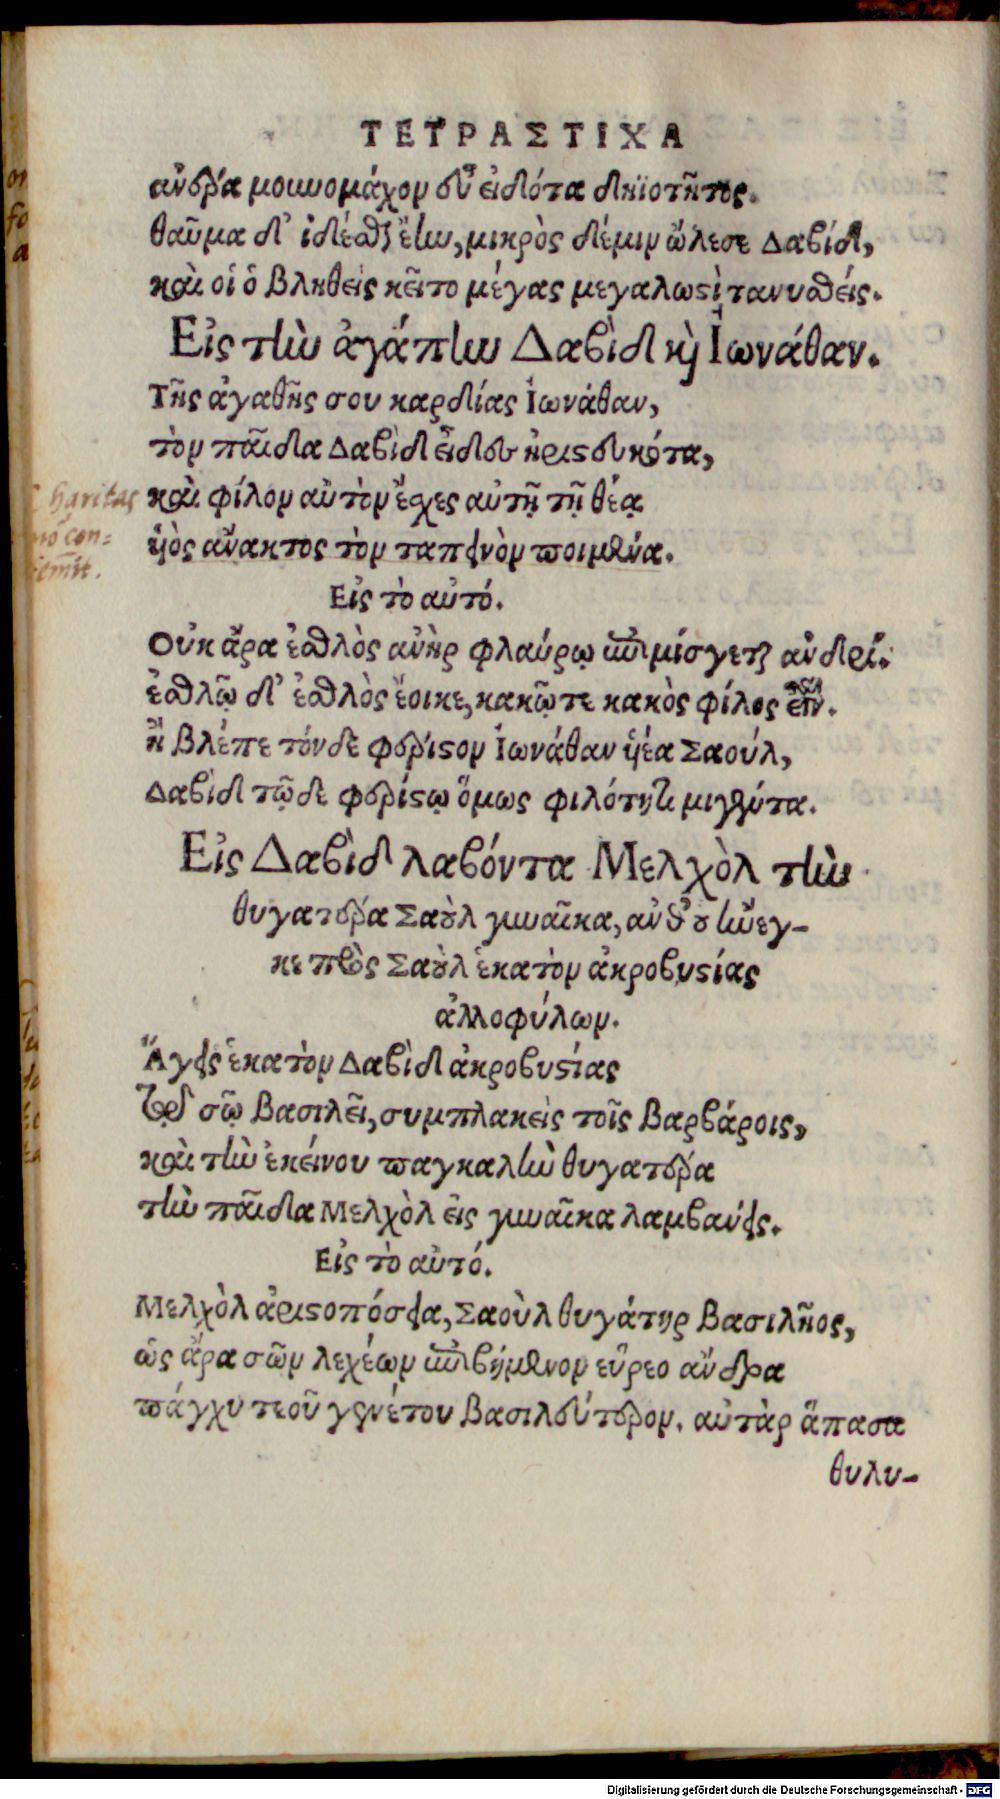 ΤΕΤΡΑΣΤΙΧΑ
ἄνδρα μουνομάχον εὖ εἰδότα δηϊοτῆτος.
θαῦμα δ' ἰδέσθαι ἔην, μικρὸς δέμιν ὤλεσε Δαβίδ,
καὶ οἱ ὁ βληθεὶς κεῖτο μέγας μεγαλωστὶ τανυσθείς.
Εἰς τὴν ἀγάπην Δαβὶδ καὶ Ἰωνάθαν.
Τῆς ἀγαθῆς σου καρδίας Ἰωνάθαν,
τὸν παῖδα Δαβὶδ εἶδεν ἠριστευκότα,
καὶ φίλον αὐτὸν ἔσχες αὐτῇ τῇ θέᾳ
Charitas
ὑὸς ἄνακτος τὸν ταπεινὸν ποιμένα.
nō con=
temnit.
Εἰς τὸ αὐτό.
Οὐκ ἄρα ἐσθλὸς ἀνὴρ φλαύρῳ ἐπιμίσγεται ἀνδρί.
ἐσθλῷ δ' ἐσθλὸς ἔοικε, κακῷ τε κακὸς φίλος ἐστίν.
ἢ βλέπε τόνδε φέριστον Ἰωνάθαν ὑέα Σαούλ,
Δαβὶδ τῷδε φερίστῳ ὅμως φιλότητι μιγέντα.
Εἰς Δαβὶδ λαβόντα Μελχὸλ τὴν
θυγατέρα Σαοὺλ γυναῖκα, ἀνθ' οὗ ἤνεγ-
κε πρὸς Σαοὺλ ἑκατὸν ἀκροβυστίας
ἀλλοφύλων.
Ἄγεις ἑκατὸν Δαβὶδ ἀκροβυστίας
τῷ σῷ βασιλεῖ, συμπλακεὶς τοῖς βαρβάροις,
καὶ τὴν ἐκείνου παγκαλὴν θυγατέρα
τὴν παῖδα Μελχὸλ εἰς γυναῖκα λαμβάνεις.
Εἰς τὸ αὐτό.
Μελχὸλ ἀριστοπόσεια, Σαοὺλ θυγάτηρ βασιλῆος,
ὡς ἄρα σῶν λεχέων ἐπιβήμενον εὕρεο ἄνδρα
πάγχυ τεοῦ γενέτου βασιλεύτερον. αὐτὰρ ἅπασα
θυλυ-
Digitalisierung gefördert durch die Deutsche Forschungsgemeinschaft - DFG